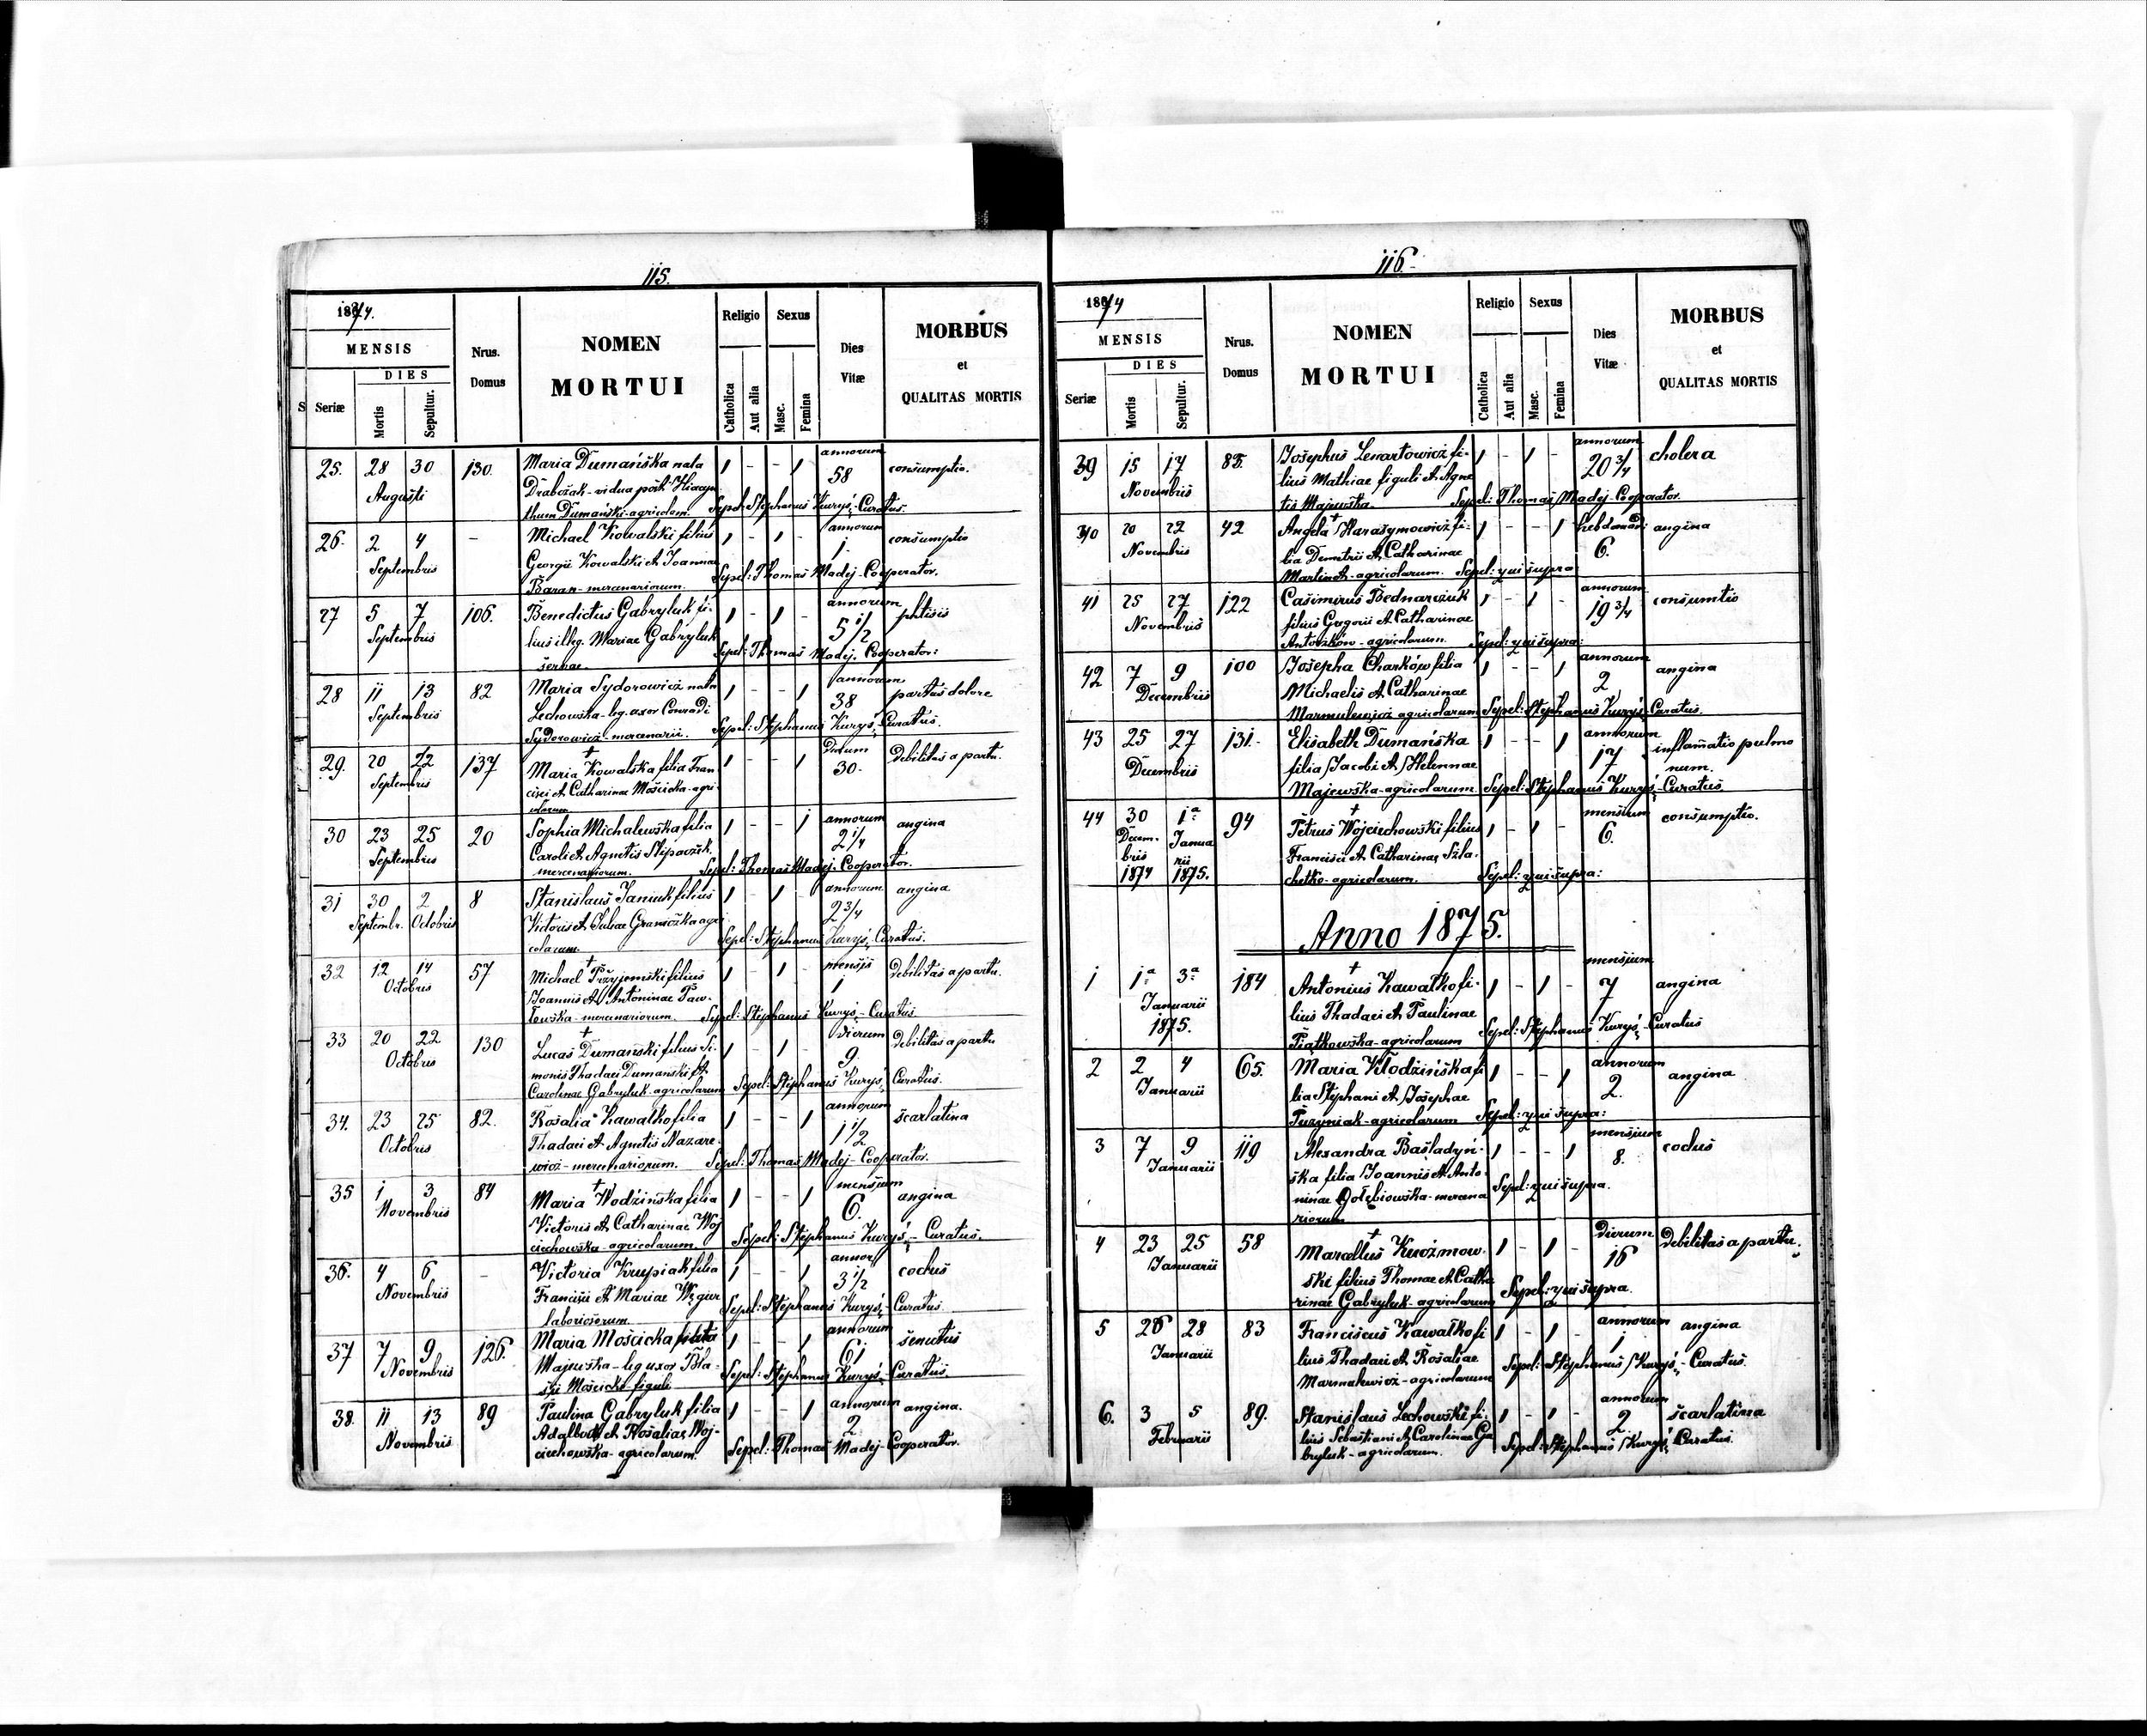 115.
1874.
MENSIS
DIES
Seriæ
Mortis
Sepultur.
Nrus. Domus
NOMEN
MORTUI
Religio
Catholica
Aut alia
Sexus
Masc.
Femina
Dies Vitæ
MORBUS
et
QUALITAS MORTIS
25. 28 30 130. Maria Dumańska nata 1 - - 1 annorum 58 consumptio.
Augusti Drabożak - vidua post Hiacyn
thum Dumański - agricolam. Sepel: Stephanus Kuryś, Curatus.
26. 2 4 - Michael Kowalski filius 1 - 1 - annorum 1. consumptio
Septembris Georgii Kowalski et Joannae
Baran - mercenariorum. Sepel: Thomas Madej - Cooperator.
27 5 7 106. Benedictus Gabryluk fi- 1 - 1 - annorum 5 1/2 phtisis
Septembris lius illeg. Mariae Gabryluk
servae. Sepel: Thomas Madej. Cooperator:
28 11 13 82 Maria Sydorowicz nata 1 - - 1 annorum 38 partus dolore
Septembris Lechowska - leg. uxor Conradi
Sydorowicz - mercenarii. Sepel: Stephanus Kuryś, Curatus.
29. 20 22 137 Maria Kowalska filia Fran 1 - - 1 Dierum 30. Debilitas a partu.
Septembris cisci et Catharinae Mościcka - agri
colarum
30 23 25 20 Sophia Michalewska filia 1 - - 1 annorum 2 1/4 angina
Septembris Caroli et Agnetis
mercenariorum. Sepel: Thomas Madej. Cooperator.
31 30 2 8 Stanislaus Janiuk filius 1 - 1 - annorum 2 3/4 angina
Septembr. Octobris Victoris et Juliae agri
colarum. Sepel: Stephanus Kuryś, Curatus.
32 12 14 57 Michael Przyjemski filius 1 - 1 - mensis 1 Debilitas a partu.
Octobris Joannis et Antoninae Paw-
łowska - mercenariorum. Sepel: Stephanus Kuryś, - Curatus
33 20 22 130 Lucas Dumanski filius Si- 1 - 1 - Dierum 9. debilitas a partu
Octobris monis Thadaei Dumanski et
Carolinae Gabryluk - agricolarum Sepel: Stephanus Kuryś, Curatus.
34. 23 25 82. Rosalia Kawałko filia 1 - - 1 annorum 1 1/2 scarlatina
Octobris Thadaei et Agnetis Nazare-
wicz - mercenariorum. Sepel: Thomas Madej - Cooperator.
35 1 3 84 Maria Wodzińska filia 1 - - 1 mensium 6. angina
Novembris Victoris et Catharinae Woj
ciechowska - agricolarum. Sepel: Stephanus Kuryś, - Curatus.
36. 4 6 - Victoria Krupiak filia 1 - - 1 annor 3 1/2 coclus
Novembris Francisci et Mariae
laboriosorum. Sepel: Stephanus Kuryś, - Curatus
37 7 9 126. Maria Mościcka nata 1 - - 1 annorum 61 senectus
Novembris Majewska - leg uxor Bla-
sii Mościcki figuli Sepel: Stephanus Kuryś, Curatus.
38. 11 13 89 Paulina Gabryluk filia 1 - - 1 annorum 2. angina.
Novembris Adalberti et Rosaliae Woj-
ciechowska - agricolarum. Sepel: Thomas Madej - Cooperator.
116.
1874
MENSIS
DIES
Seriæ
Mortis
Sepultur.
Nrus. Domus
NOMEN
MORTUI
Religio
Catholica
Aut alia
Sexus
Masc.
Femina
Dies Vitæ
MORBUS
et
QUALITAS MORTIS
39 15 17 85. Josephus Lewartowicz fi- 1 - 1 - annorum 20 3/4 cholera
Novembris lius Mathiae figuli et Agne
tis Majewska. Sepel: Thomas Madej - Cooperator.
40 20 22 42 Angela Harasymowicz fi- 1 - - 1 hebdomad: 6. angina
Novembris lia Demetrii et Catharinae
agricolarum. Sepel: qui supra
41 25 27 122 Casimirus Bednarczuk 1 - 1 - annorum 19 3/4 consumtio
Novembris filius Gregorii et Catharinae
Antoszków - agricolarum. Sepel: qui supra:
42 7 9 100 Josepha Charków filia 1 - - 1 annorum 2 angina
Decembris Michaelis et Catharinae
Marmulewicz agricolarum Sepel: Stephanus Kuryś, Curatus.
43 25 27 131. Elisabeth Dumańska 1 - - 1 annorum 17 inflamatio pulmo
Decembris filia Jacobi et Helennae num.
Majewska - agricolarum Sepel: Stephanus Kuryś, - Curatus.
44 30 1a 94 Petrus Wojciechowski filius 1 - 1 - mensium 6. consumptio.
Decembris 1874 Januarii 1875. Francisci et Catharinae Szla-
chetko - agricolarum. Sepel: qui supra:
Anno 1875.
1 1a 3a 184 Antonius Kawałko fi- 1 - 1 - mensium 7 angina
Januarii lius Thadaei et Paulinae
1875. Piątkowska - agricolarum Sepel: Stephanus Kuryś, - Curatus
2 2 4 65. Maria Kłodzińska fi 1 - - 1 annorum 2. angina
Januarii lia Stephani et Josephae
Puzyniak - agricolarum Sepel: qui supra:
3 7 9 119 Alexandra Basladyń- 1 - - 1 mensium 8. coclus
Januarii ska filia Joannis et Anto-
ninae Gołębiowska - mercena Sepel: qui supra.
riorum
4 23 25 58 Marcellus Kuźmow- 1 - 1 - Dierum 16 Debilitas a partu.
Januarii ski filius Thomae et Catha
rinae Gabryluk - agricolarum Sepel: qui supra.
5 26 28 83 Franciscus Kawałko fi 1 - 1 - annorum 1 angina
Januarii lius Thadaei et Rosaliae
Marmulewicz - agricolarum Sepel: Stephanus Kuryś, - Curatus.
6. 3 5 89. Stanislaus Lechowski fi- 1 - 1 - annorum 2 scarlatina
Februarii lius Sebastiani et Carolinae Ga
bryluk - agricolarum. Sepel: Stephanus Kuryś, Curatus.